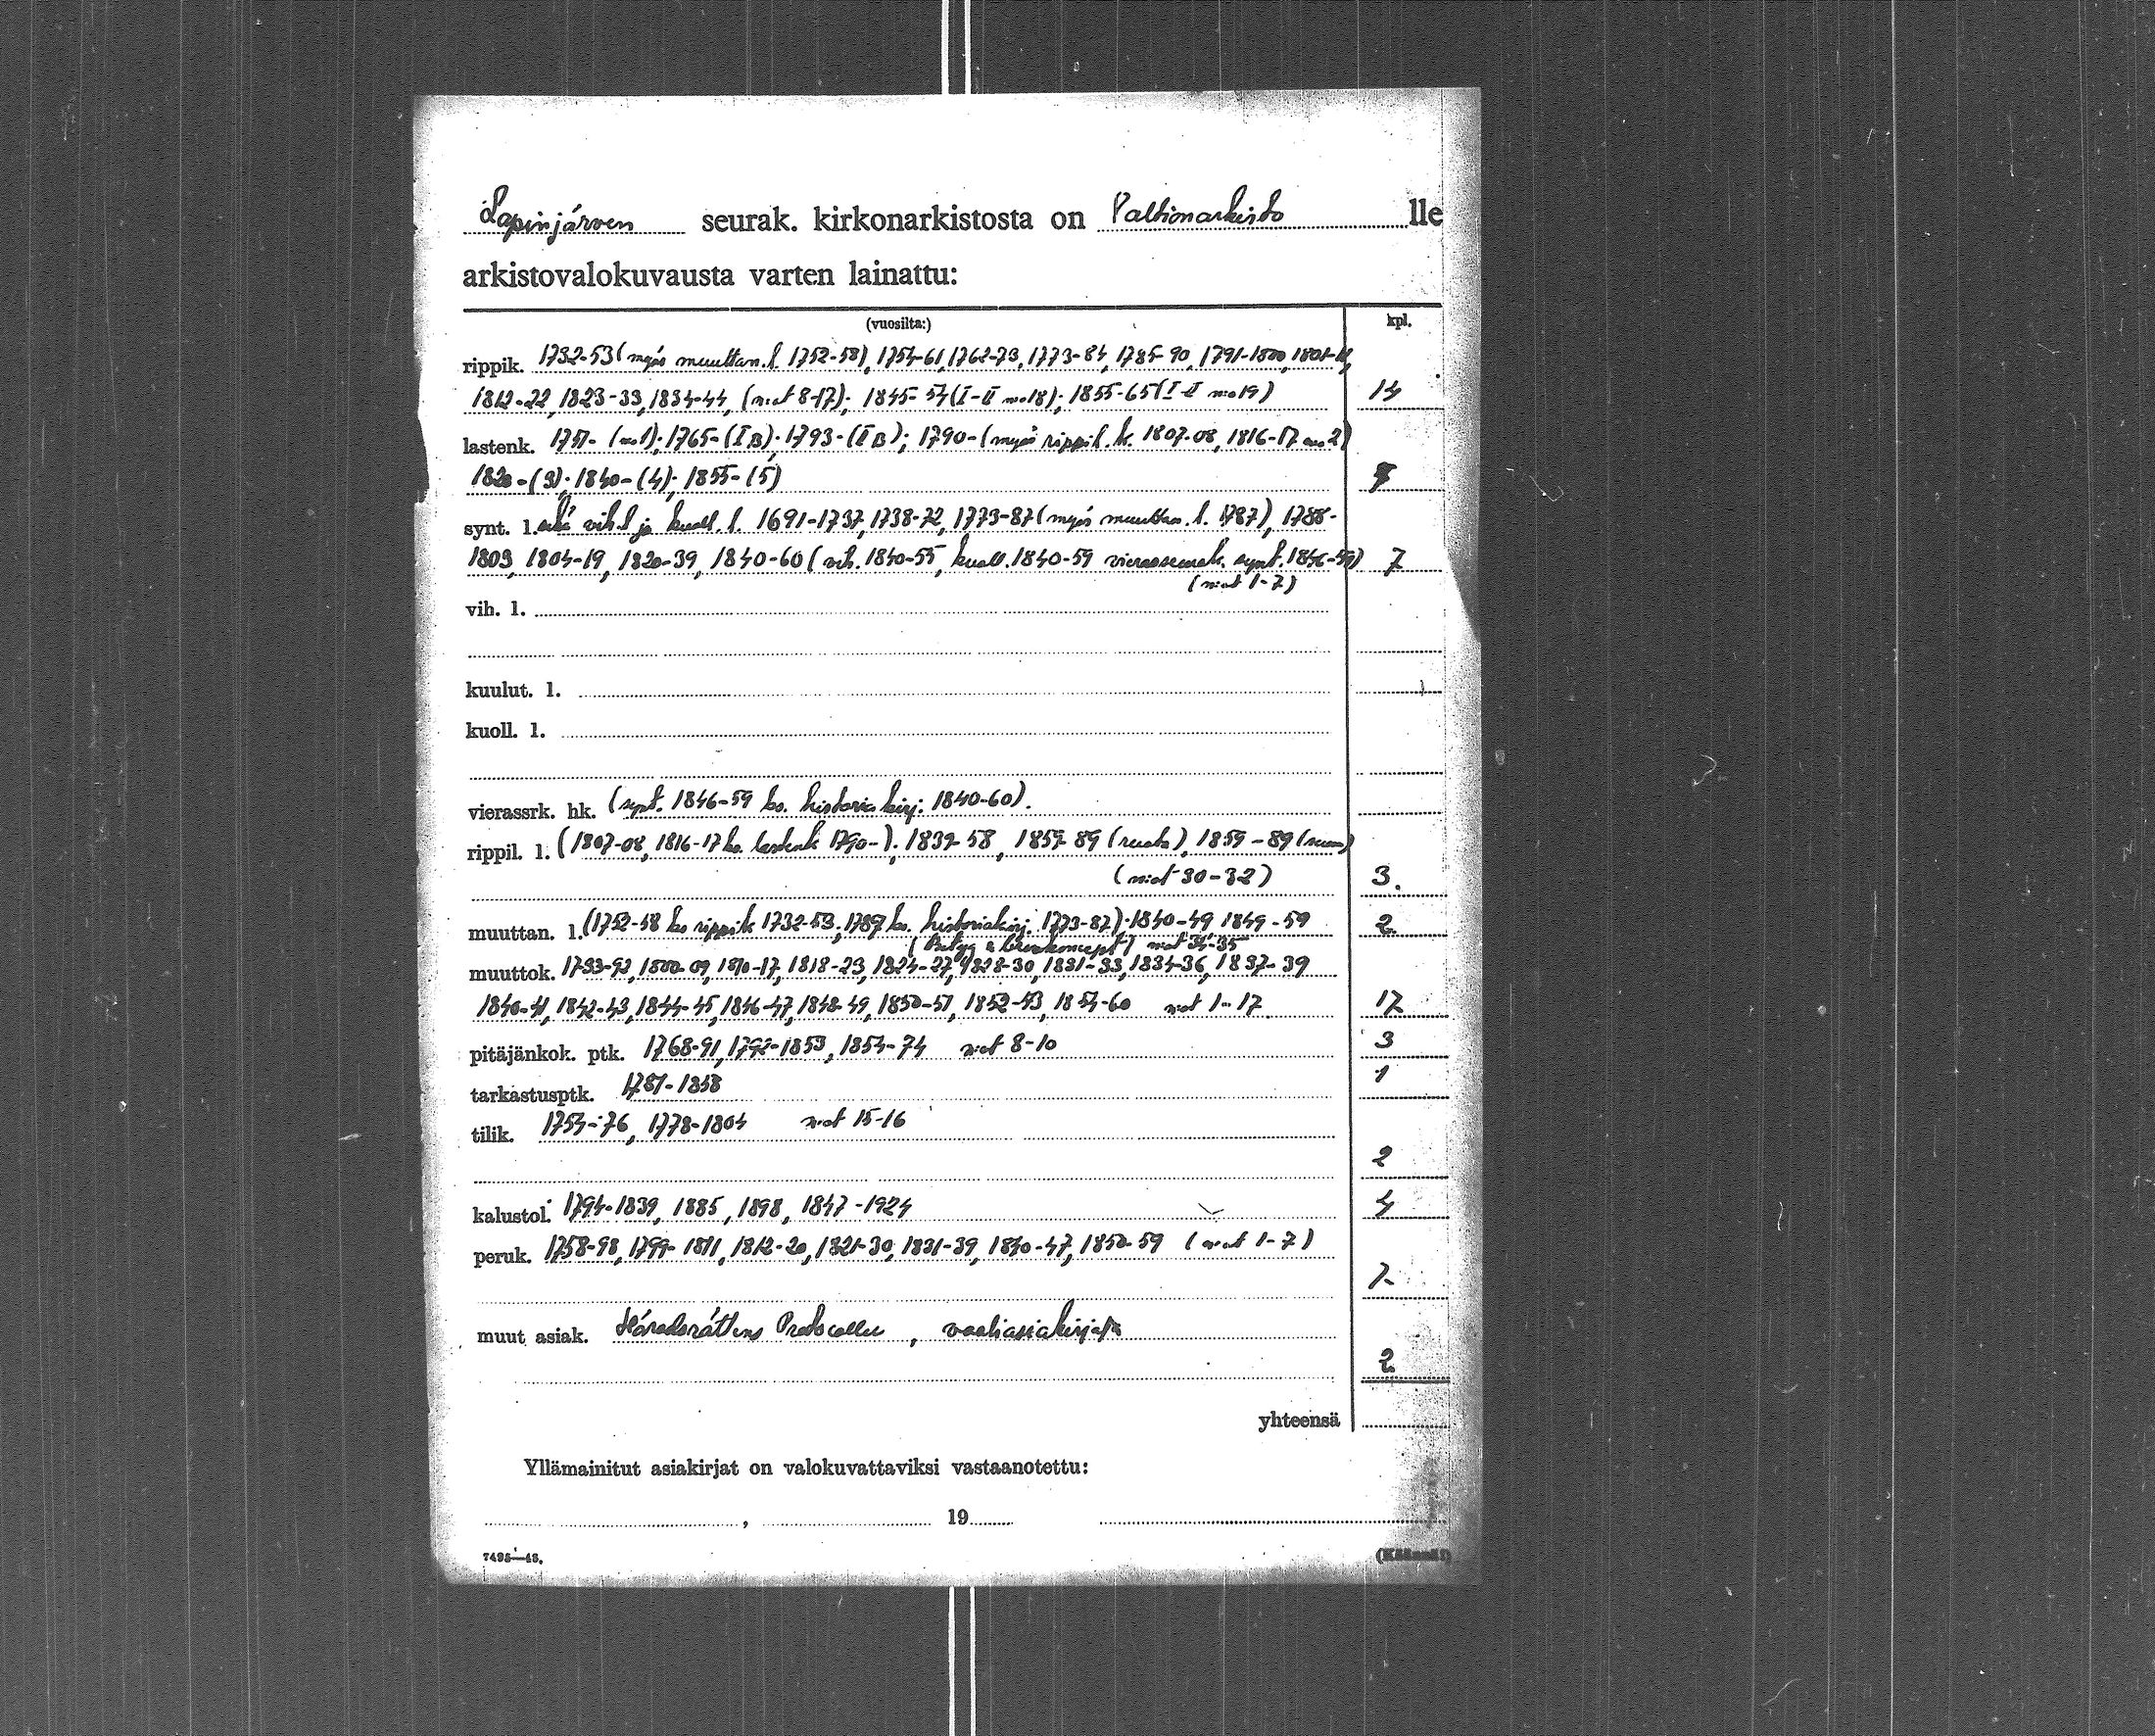 Lapinjärven seurak. kirkonarkistosta on Valtionarkisto lle
arkistovalokuvausta varten lainattu:
(vuosilta:) kpl.
rippik. 1732-53 (myös muuttan. l. 1752-58), 1754-61, 1762-73, 1773-84, 1785-90, 1791-1800, 1801-11,
1812-22, 1823-33, 1834-44, (n:ot 8-17); 1845-54 (I-II n:o 18); 1855-65 (I-II n:o 19) 14
lastenk. 1751- (n:o 1); 1765- (I B); 1793- (II B); 1790- (myös rippil. k. 1807-08, 1816-17 n:o 2)
1820- (3); 1840- (4); 1855- (5) 7
synt. l. sekä vih. l ja kuoll. l. 1691-1737, 1738-72, 1773-87 (myös muuttan. l. 1787), 1788-
1803, 1804-19, 1820-39, 1840-60 (vih. 1840-55, kuoll. 1840-59 vierasseurak. synt. 1846-59) 7
(n:ot 1-7)
vih. l.
kuulut. l.
kuoll. l.
vierassrk. hk. (synt. 1846-59 ks. historiakirj. 1840-60).
rippil. l. (1807-08, 1816-17 ks. lastenk 1790-). 1839-58, 1859-89 (ruots), 1859-89 (suom)
(n:ot 30-32) 3.
muuttan. l. (1752-58 ks rippik 1732-53, 1787 ks. historiakirj. 1773-87). 1840-49 1849-59 2
(Betyg & brevkoncept) n:ot 34-35
muuttok. 1793-92, 1800-09, 1810-17, 1818-23, 1824-27, 1828-30, 1831-33, 1834-36, 1837-39
1840-41, 1842-43, 1844-45, 1846-47, 1848-49, 1850-51, 1852-53, 1854-60 n:ot 1-17 17
pitäjänkok. ptk. 1768-91, 1792-1853, 1854-74 n:ot 8-10 3
tarkastusptk. 1781-1858 1
tilik. 1754-76, 1778-1804 n:ot 15-16
2
kalustol. 1794-1839, 1885, 1898, 1847-1924 4
peruk. 1758-98, 1799-1811, 1812-20, 1821-30, 1831-39, 1840-47, 1850-59 (n:ot 1-7)
7
muut asiak. Häradsrättens Protocoller, vaaliasiakirjoja
2
yhteensä
Yllämainitut asiakirjat on valokuvattaviksi vastaanotettu:
, 19
7495—48. (Käännä!)